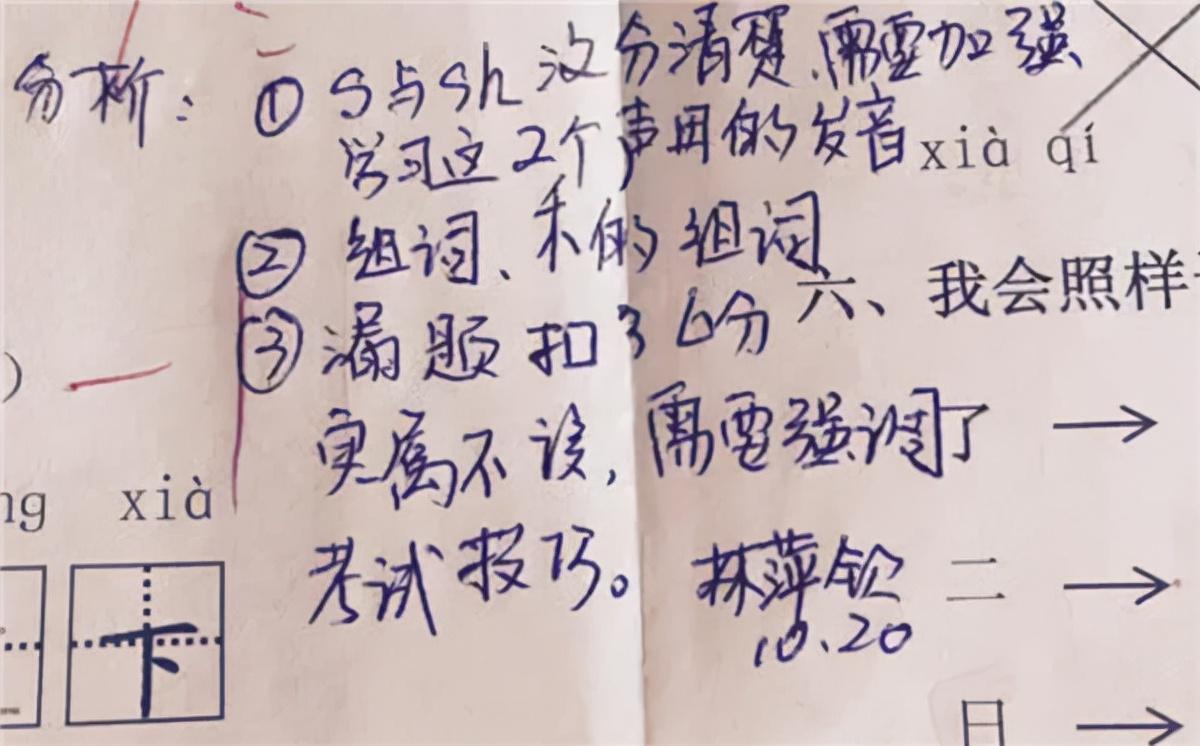 分析：① s与sh没分清楚、需要加强
学习这2个声母的发音
xià qí
② 组词、禾的组词
六、我会照样
③ 漏题扣36分
实属不该，需要强调了 →
ng xià
考试技巧。 林萍钦
二 →
10.20
下
日 →